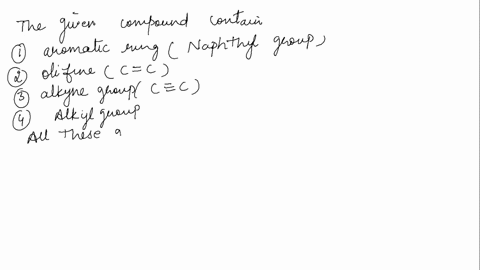 The given compound contain
① aromatic ring ( Naphthyl group )
② olifine ( C=C )
③ alkyne group ( C≡C )
④ Alkyl group
All These a